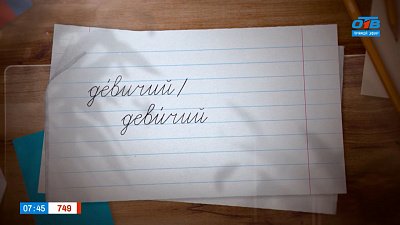 ОТВ
ПРЯМОЙ ЭФИР
де́вичий /
деви́чий
07:45 749